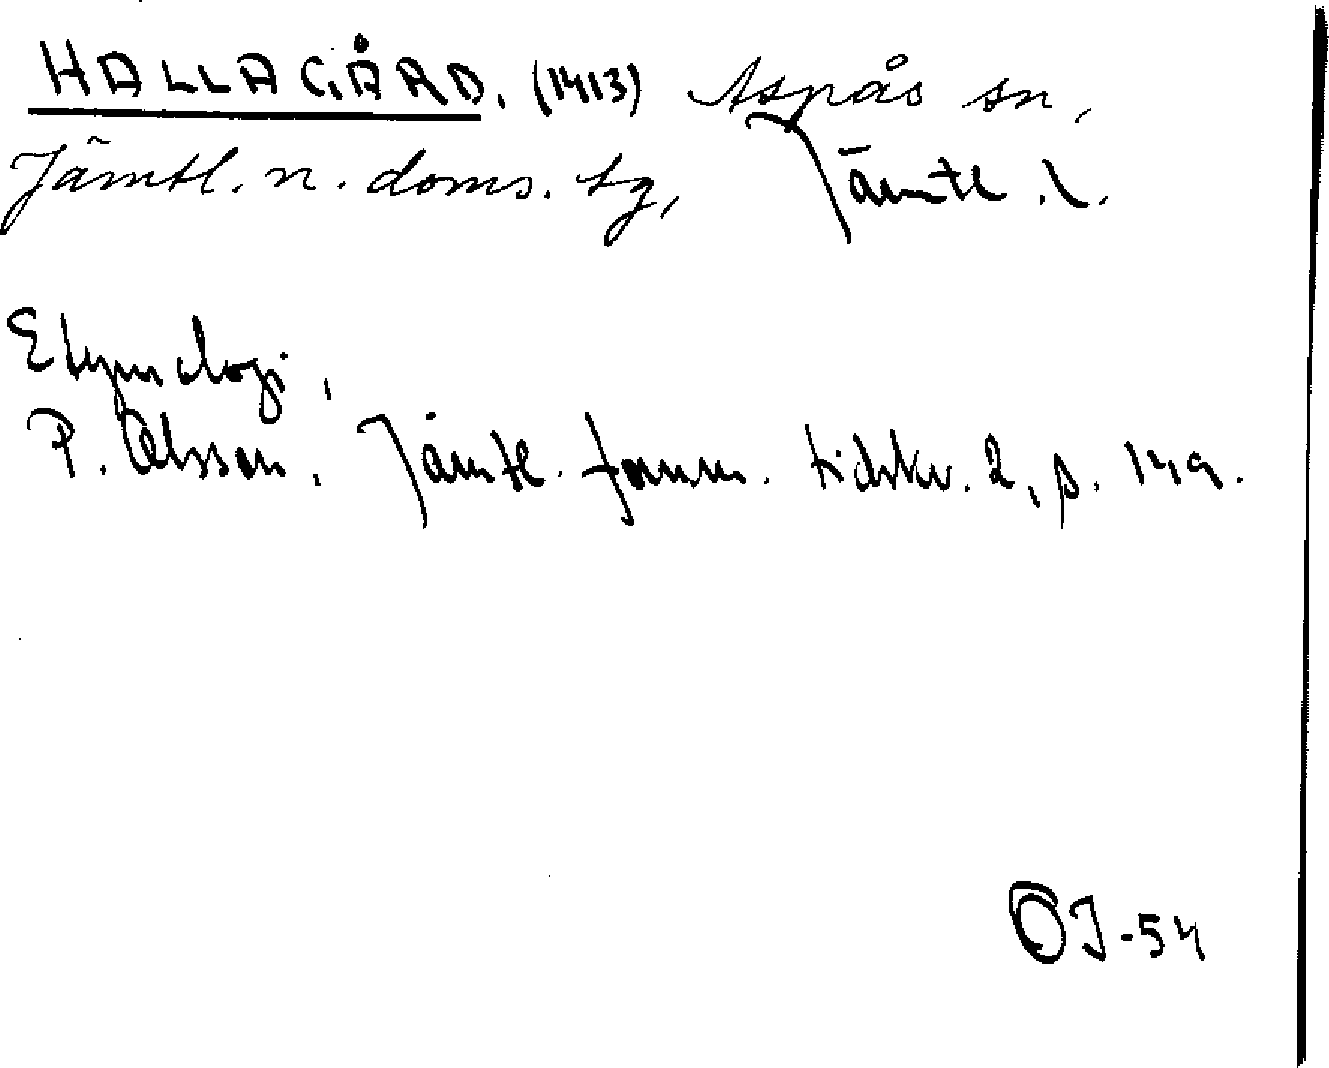 HALLAGÅRD. (1413) Aspås sn,
Jämtl. n. doms. tg, Jämtl. l.
Etymologi,
P. Olsson, Jämtl. fornm. tidskr. 2, p. 149.
OJ-54